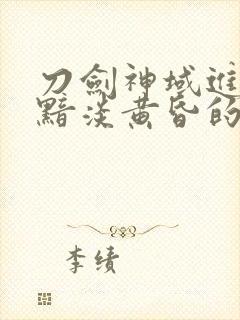 刀劍神域進
黯淡黃昏的
李績